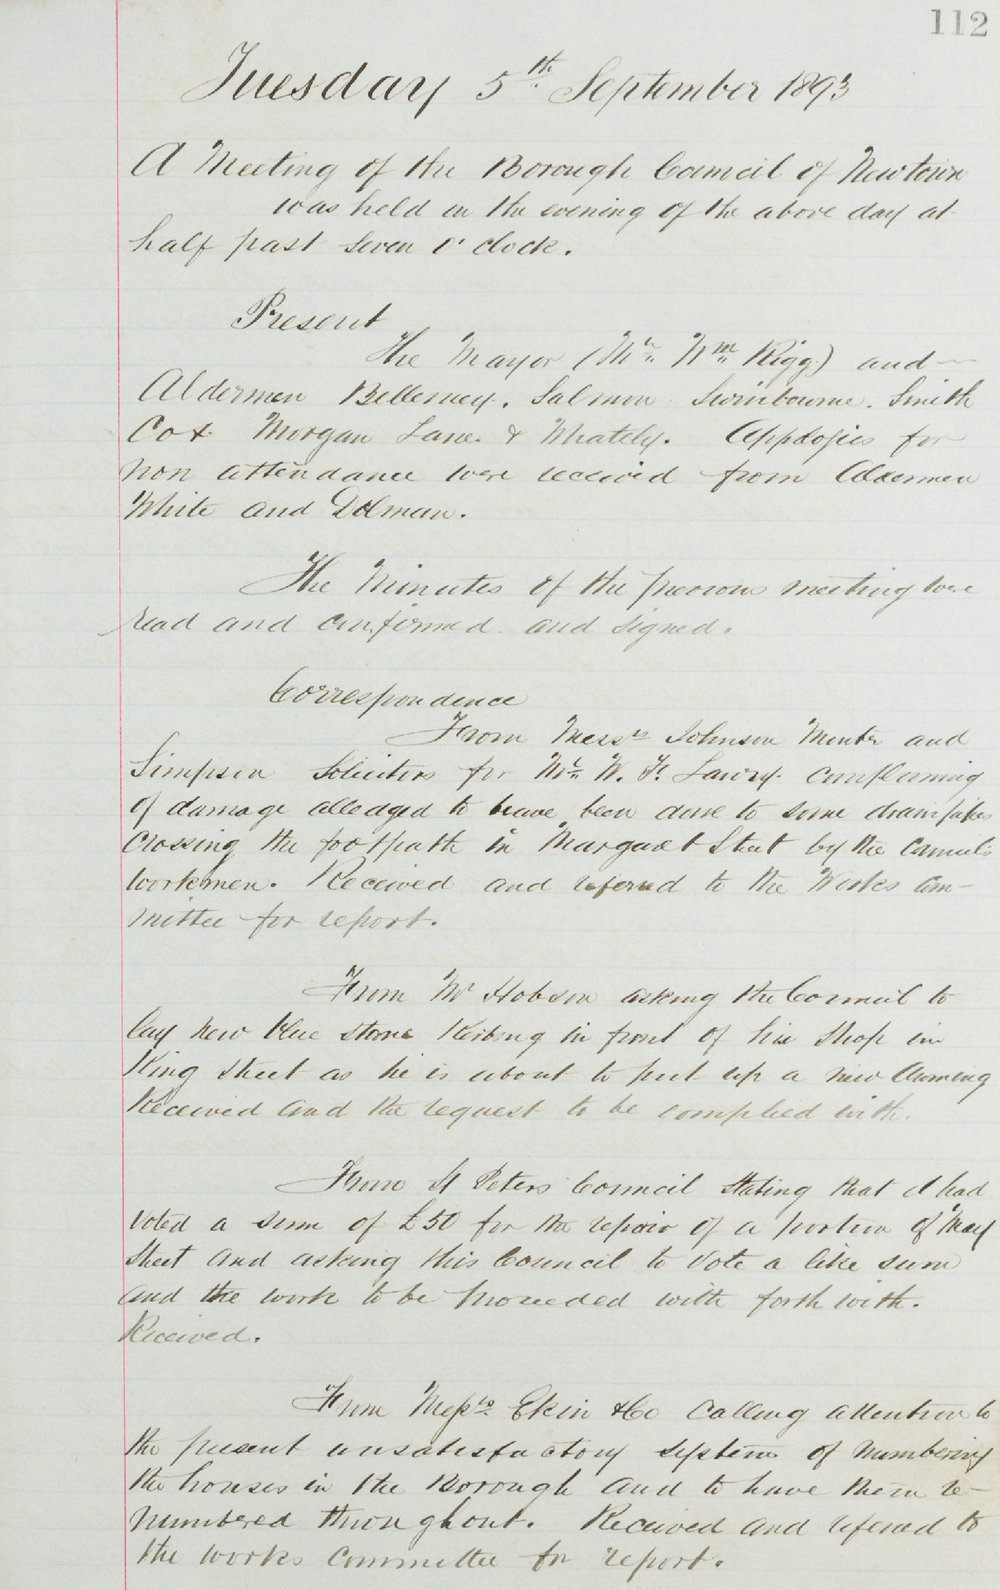 112
Tuesday 5th September 1893
A Meeting of the Borough Council of Newtown
was held on the evening of the above day at
half past seven o'clock.
Present
The Mayor (Mr. Wm. Rigg) and
Aldermen Bellemey. Salmon Swinbourne. Smith
Cox Morgan Lane. & Whately. Appologies for
non attendance were received from Aldermen
White and Dolman.
The Minutes of the previous meeting were
read and confirmed and signed.
Correspondence
From Messrs Johnson Minter and
Simpson Solicitors for Mr. W. F. Lawry. complaining
of damage alledged to have been done to some drainpipes
crossing the footpath in Margaret Street by the Council's
workmen. Received and referred to the Works Com-
mittee for report.
From Mr Hobson asking the Council to
lay new blue stone Kerbing in front of his shop in
King Street as he is about to put up a new Awning
Received and the request to be complied with.
From St Peters Council stating that it had
voted a sum of £50 for the repair of a portion of May
Street and asking this Council to vote a like sum
and the work to be proceeded with forthwith.
Received.
From Messrs. Ekin & Co calling attention to
the present unsatisfactory system of numbering
the houses in the Borough and to have them re-
numbered throughout. Received and referred to
the works Committee for report.